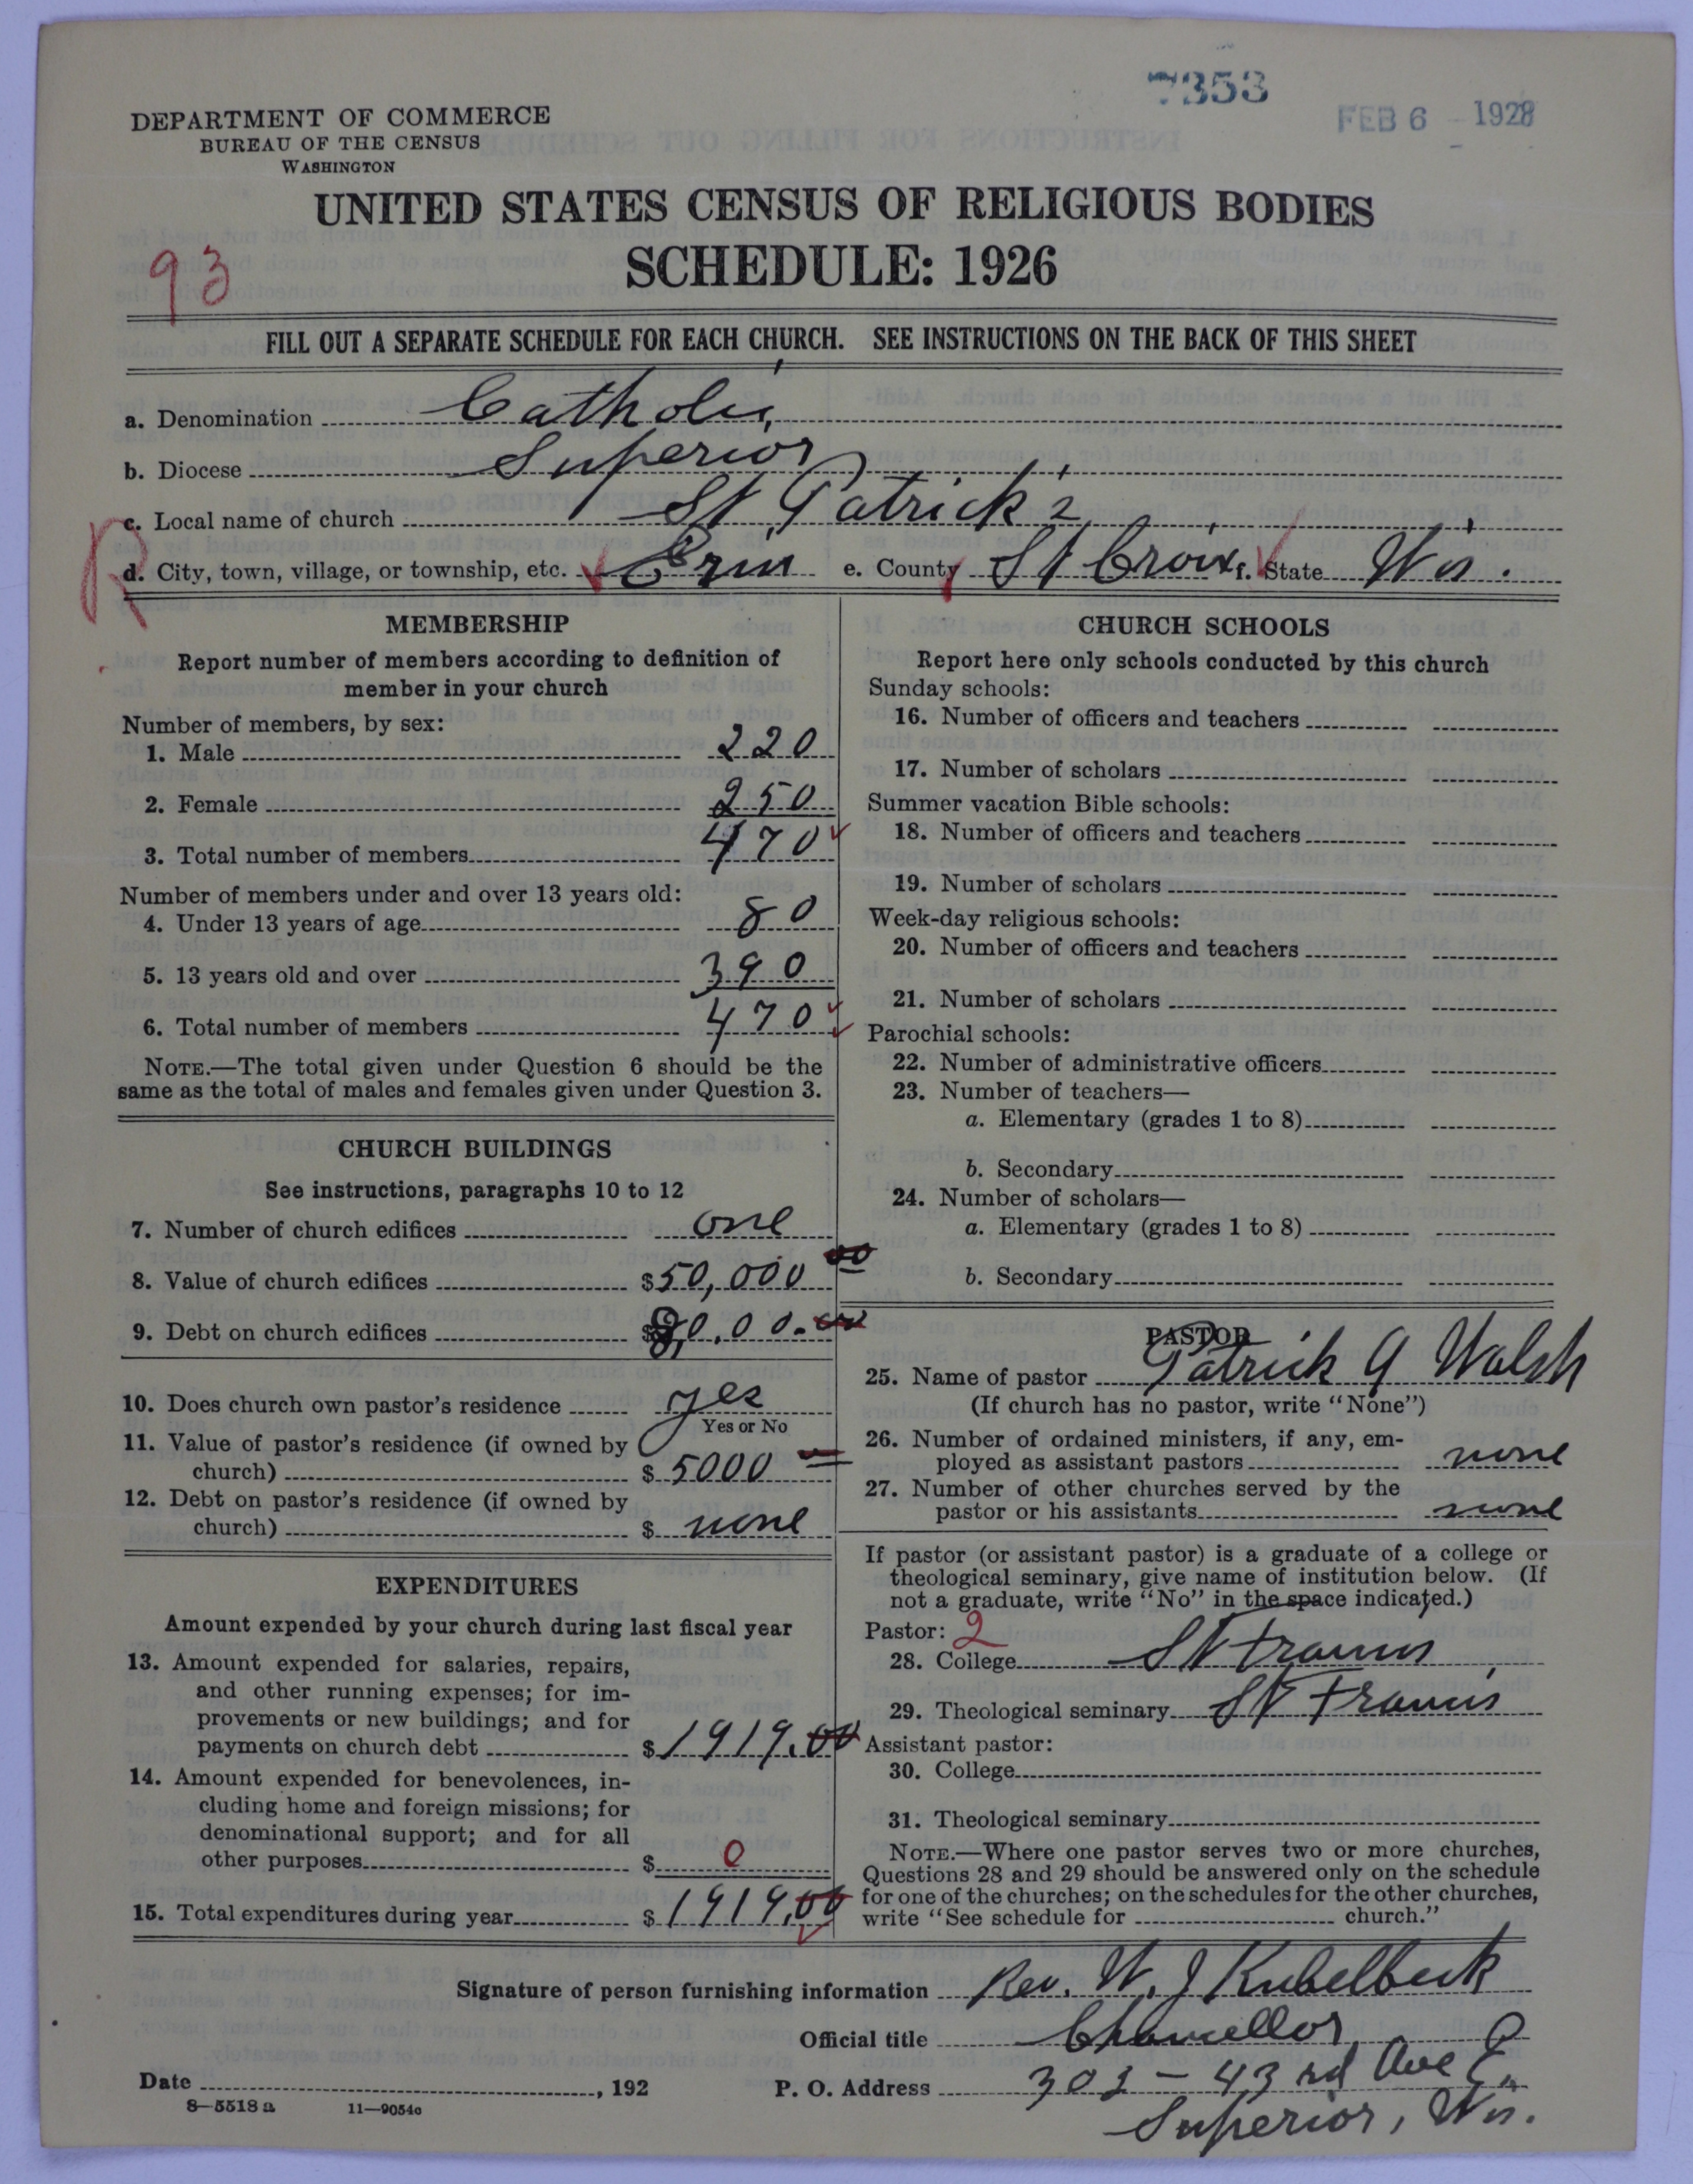 7353
FEB 6 - 1928
DEPARTMENT OF COMMERCE
BUREAU OF THE CENSUS
WASHINGTON
UNITED STATES CENSUS OF RELIGIOUS BODIES
SCHEDULE: 1926
93
FILL OUT A SEPARATE SCHEDULE FOR EACH CHURCH. SEE INSTRUCTIONS ON THE BACK OF THIS SHEET
a. Denomination Catholic
b. Diocese Superior
c. Local name of church St Patrick's
R
d. City, town, village, or township, etc. Erin e. County St Croix f. State Wis.
MEMBERSHIP
Report number of members according to definition of
member in your church
Number of members, by sex:
1. Male 220
2. Female 250
3. Total number of members 470
Number of members under and over 13 years old:
4. Under 13 years of age 80
5. 13 years old and over 390
6. Total number of members 470
NOTE.—The total given under Question 6 should be the
same as the total of males and females given under Question 3.
CHURCH BUILDINGS
See instructions, paragraphs 10 to 12
7. Number of church edifices one
8. Value of church edifices $50,000 00
9. Debt on church edifices $
10. Does church own pastor's residence yes
Yes or No
11. Value of pastor's residence (if owned by
church) $ 5000
12. Debt on pastor's residence (if owned by
church) $ none
EXPENDITURES
Amount expended by your church during last fiscal year
13. Amount expended for salaries, repairs,
and other running expenses; for im-
provements or new buildings; and for
payments on church debt $1919.00
14. Amount expended for benevolences, in-
cluding home and foreign missions; for
denominational support; and for all
other purposes $ 0
15. Total expenditures during year $1919.00
CHURCH SCHOOLS
Report here only schools conducted by this church
Sunday schools:
16. Number of officers and teachers
17. Number of scholars
Summer vacation Bible schools:
18. Number of officers and teachers
19. Number of scholars
Week-day religious schools:
20. Number of officers and teachers
21. Number of scholars
Parochial schools:
22. Number of administrative officers
23. Number of teachers—
a. Elementary (grades 1 to 8)
b. Secondary
24. Number of scholars—
a. Elementary (grades 1 to 8)
b. Secondary
PASTOR
25. Name of pastor Patrick A Walsh
(If church has no pastor, write "None")
26. Number of ordained ministers, if any, em-
ployed as assistant pastors none
27. Number of other churches served by the
pastor or his assistants none
If pastor (or assistant pastor) is a graduate of a college or
theological seminary, give name of institution below. (If
not a graduate, write "No" in the space indicated.)
Pastor: 2
28. College St Francis
29. Theological seminary St Francis
Assistant pastor:
30. College
31. Theological seminary
NOTE.—Where one pastor serves two or more churches,
Questions 28 and 29 should be answered only on the schedule
for one of the churches; on the schedules for the other churches,
write "See schedule for church."
Signature of person furnishing information Rev. W. J Kubelbeck
Official title Chancellor
Date , 192 P. O. Address 303 - 43rd Ave E.
8-5518 a 11-9054c
Superior, Wis.